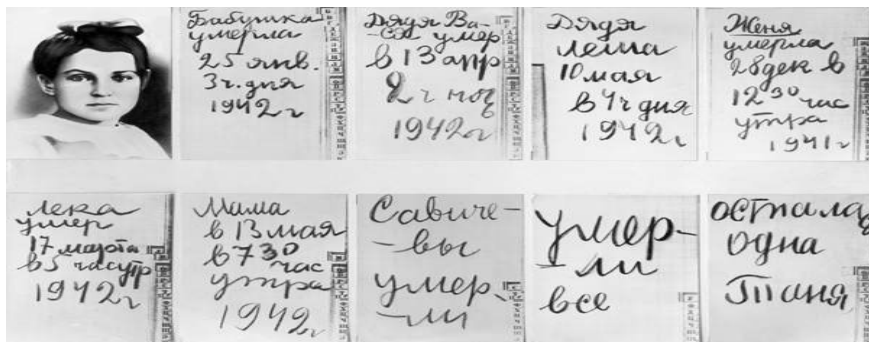 Бабушка
умерла
25 янв.
3 ч. дня
1942 г
Дядя Ва-
-ся умер
в 13 апр
2 ч ноч
1942 г
Дядя
Леша
10 мая
в 4 ч дня
1942 г
Женя
умерла
28 дек в
12 30 час
утра
1941 г
Лека
умер
17 марта
в 5 час утр
1942 г
Мама
в 13 мая
в 7 30
час
утра
1942 г
Савиче-
-вы
умер-
-ли
Умер-
-ли
все
Осталас
одна
Таня